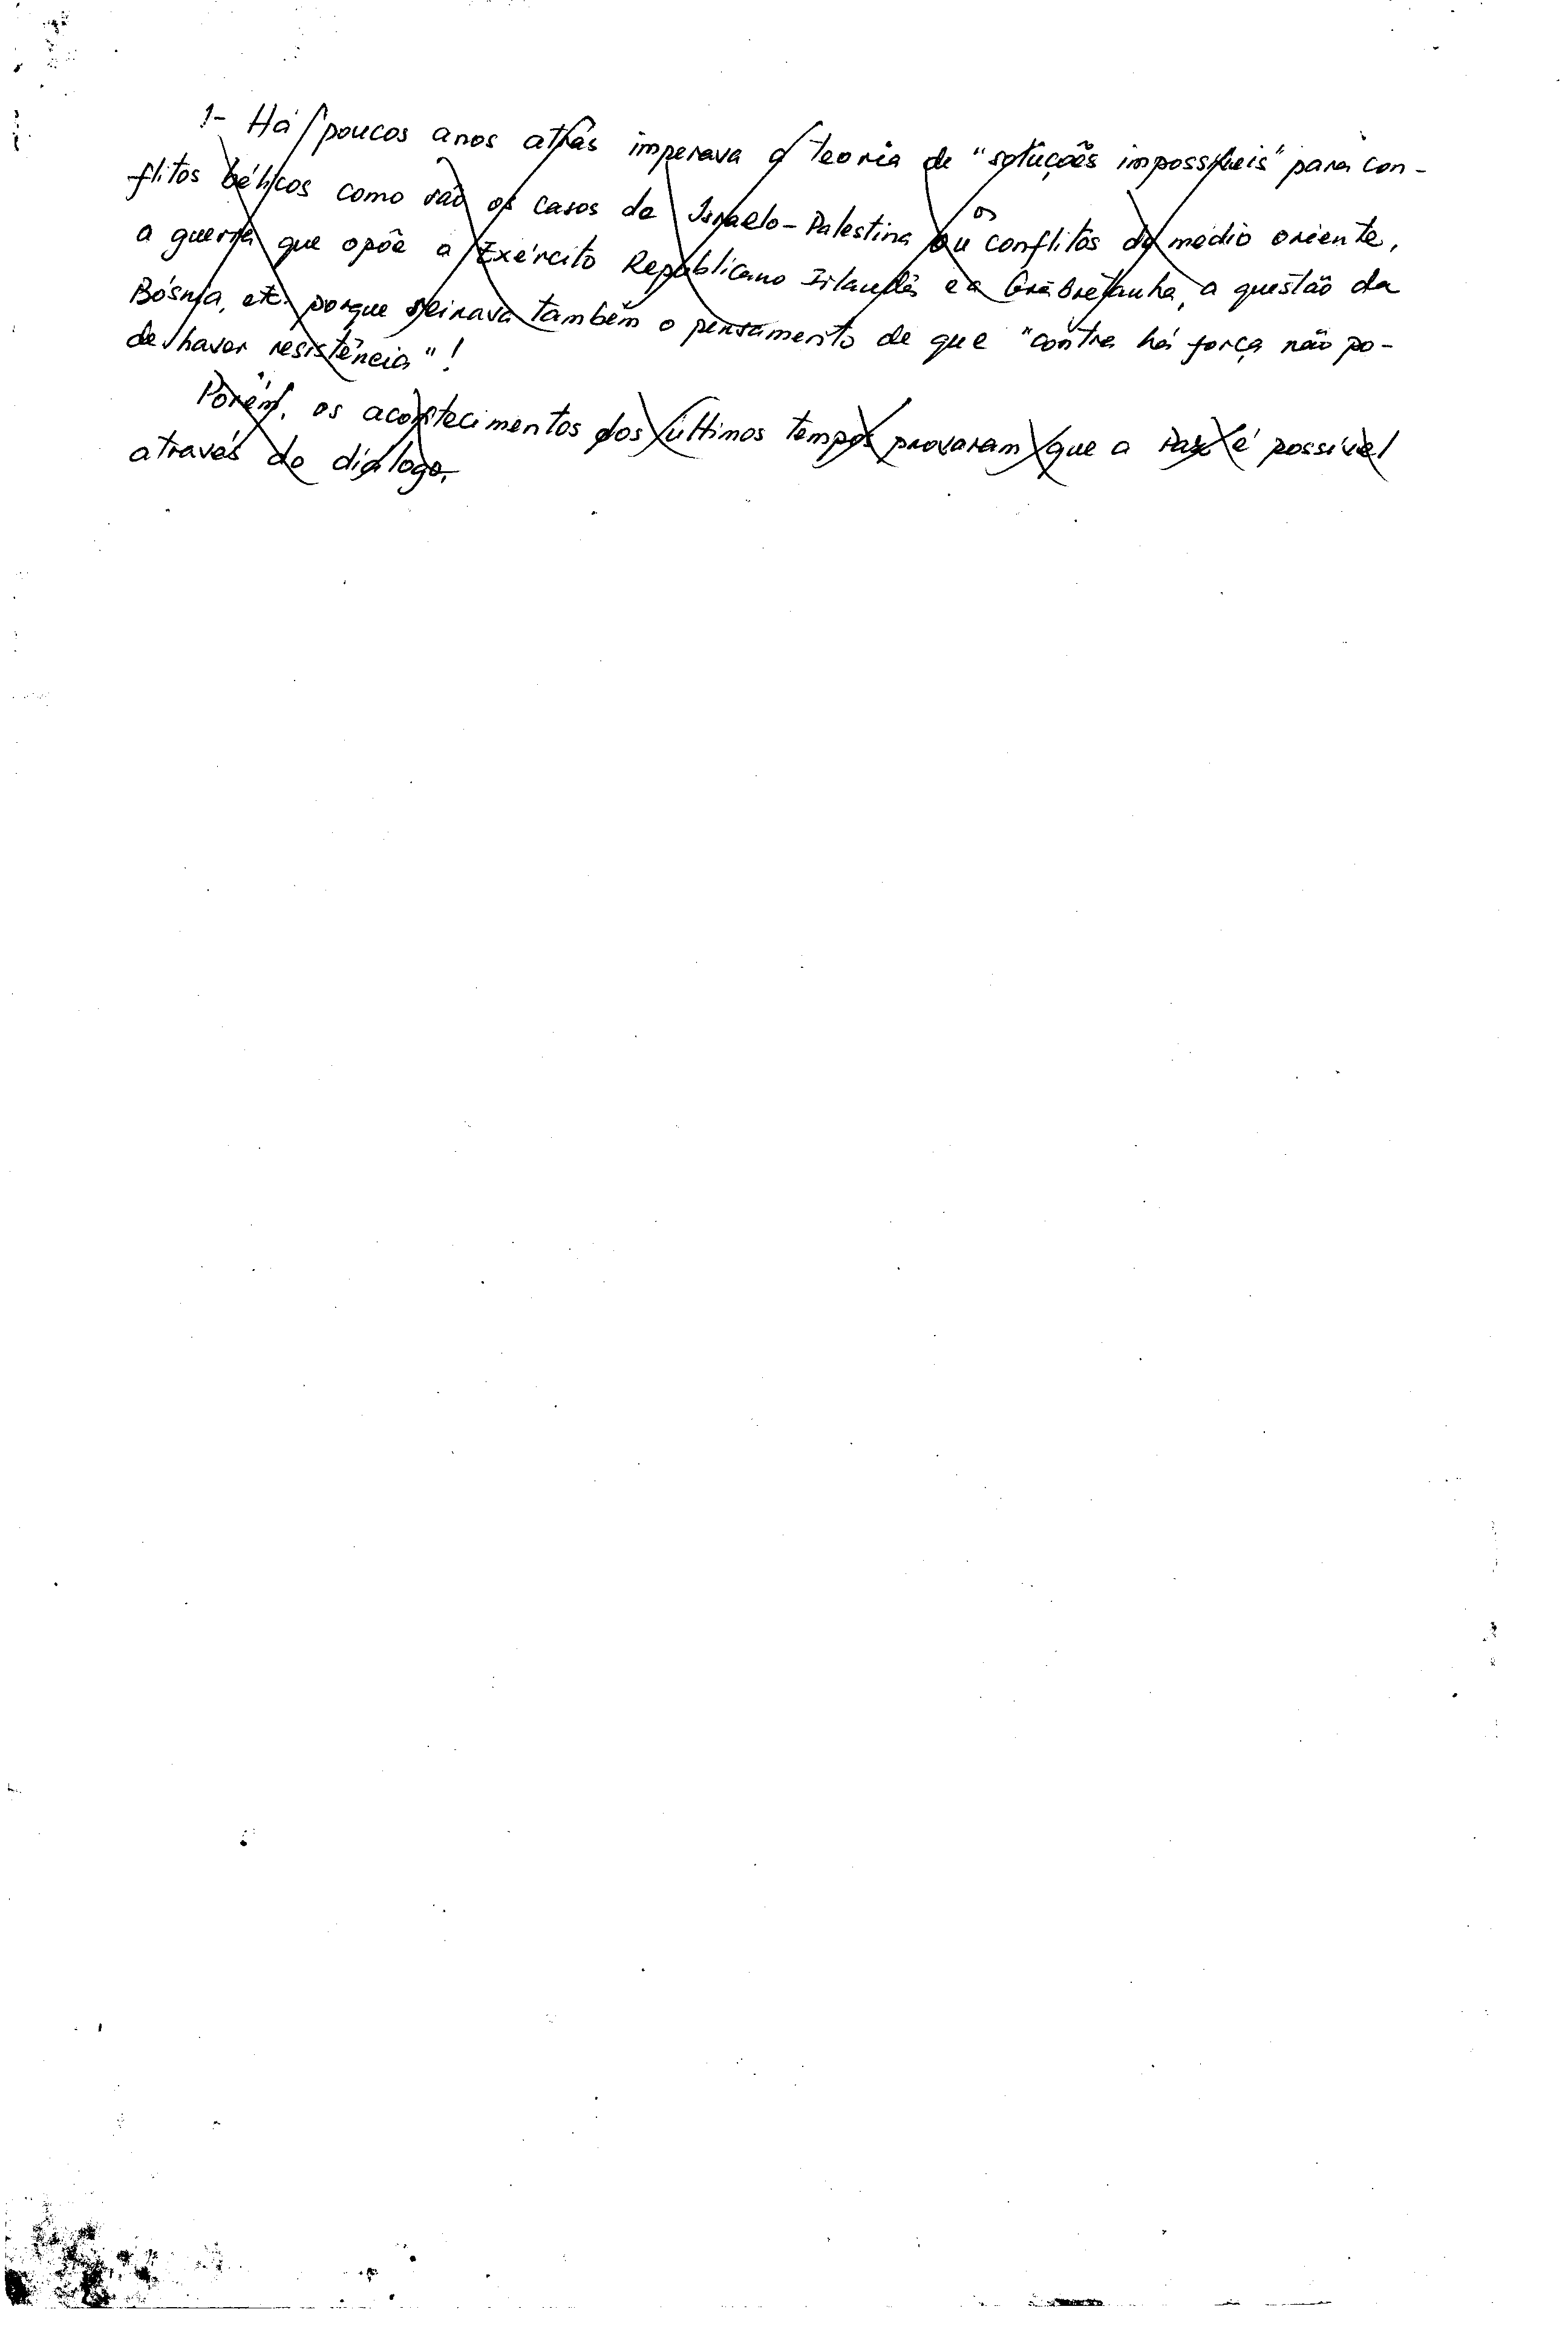 1- Há poucos anos atrás imperava a teoria de "soluções impossíveis" para con-
flitos bélicos como são os casos de Israelo-Palestina ou os conflitos do médio oriente,
a guerra que opõe a Exército Republicano Irlandês e a Grã Bretanha, a questão da
Bósnia, etc. porque reinava também o pensamento de que "contra há força não po-
de haver resistência"!
Porém, os acontecimentos dos últimos tempos provaram que a Paz é possível
através do diálogo.